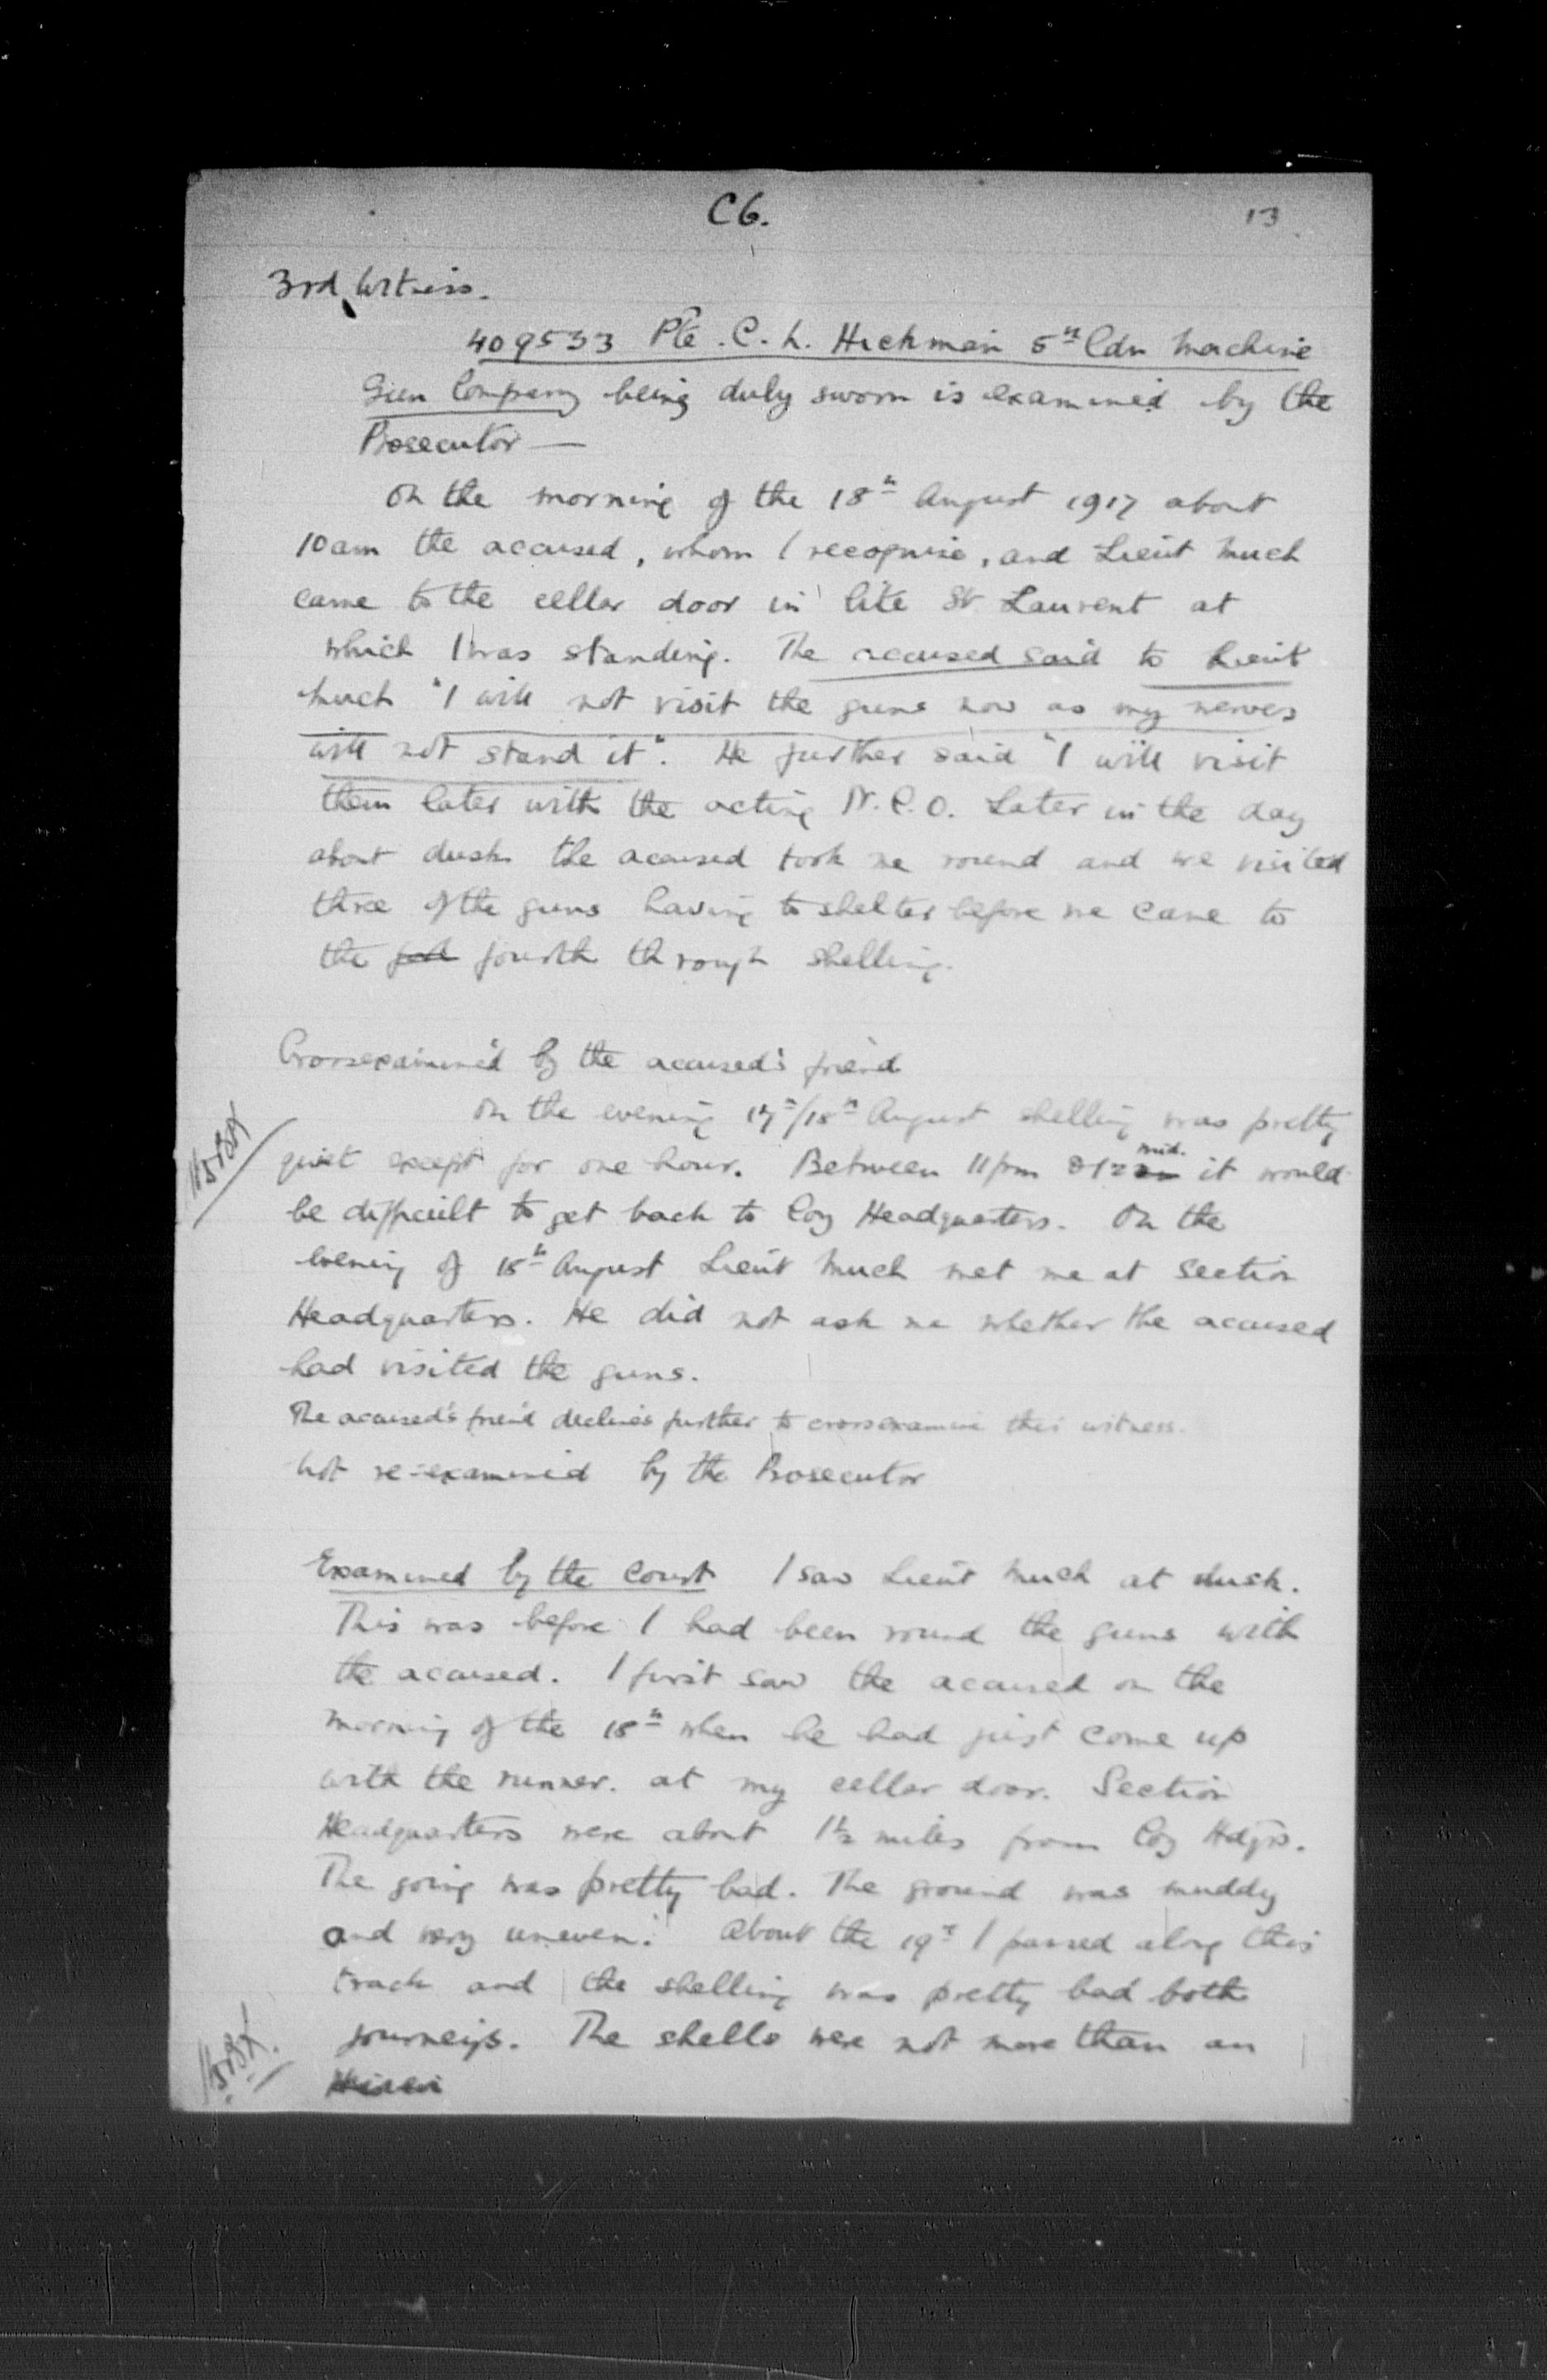 C6.
13
3rd Witness.
409533 Pte. C. L. Hickman 5th Cdn Machine
Gun Company being duly sworn is examined by the
Prosecutor —
On the morning of the 18th August 1917 about
10am the accused, whom I recognise, and Lieut Much
came to the cellar door in Cité St. Laurent at
which I was standing. The accused said to Lieut
Much "I will not visit the guns now as my nerves
will not stand it". He further said "I will visit
them later with the acting N.C.O. Later in the day
about dusk the accused took me round and we visited
three of the guns having to shelter before we came to
the fourth through shelling.
Crossexamined by the accused's friend
On the evening 17th/18th August shelling was pretty
quiet except for one hour. Between 11pm & 12 mid. it would
be difficult to get back to Coy Headquarters. On the
evening of 18th August Lieut Much met me at Section
Headquarters. He did not ask me whether the accused
had visited the guns.
The accused's friend declines further to crossexamine this witness.
Not re-examined by the Prosecutor
Examined by the Court I saw Lieut Much at dusk.
This was before I had been round the guns with
the accused. I first saw the accused on the
morning of the 18th when he had just come up
with the runner. at my cellar door. Section
Headquarters were about 1½ miles from Coy Hdqrs.
The going was pretty bad. The ground was muddy
and very uneven. About the 19th I passed along this
track and the shelling was pretty bad both
journeys. The shells were not more than an